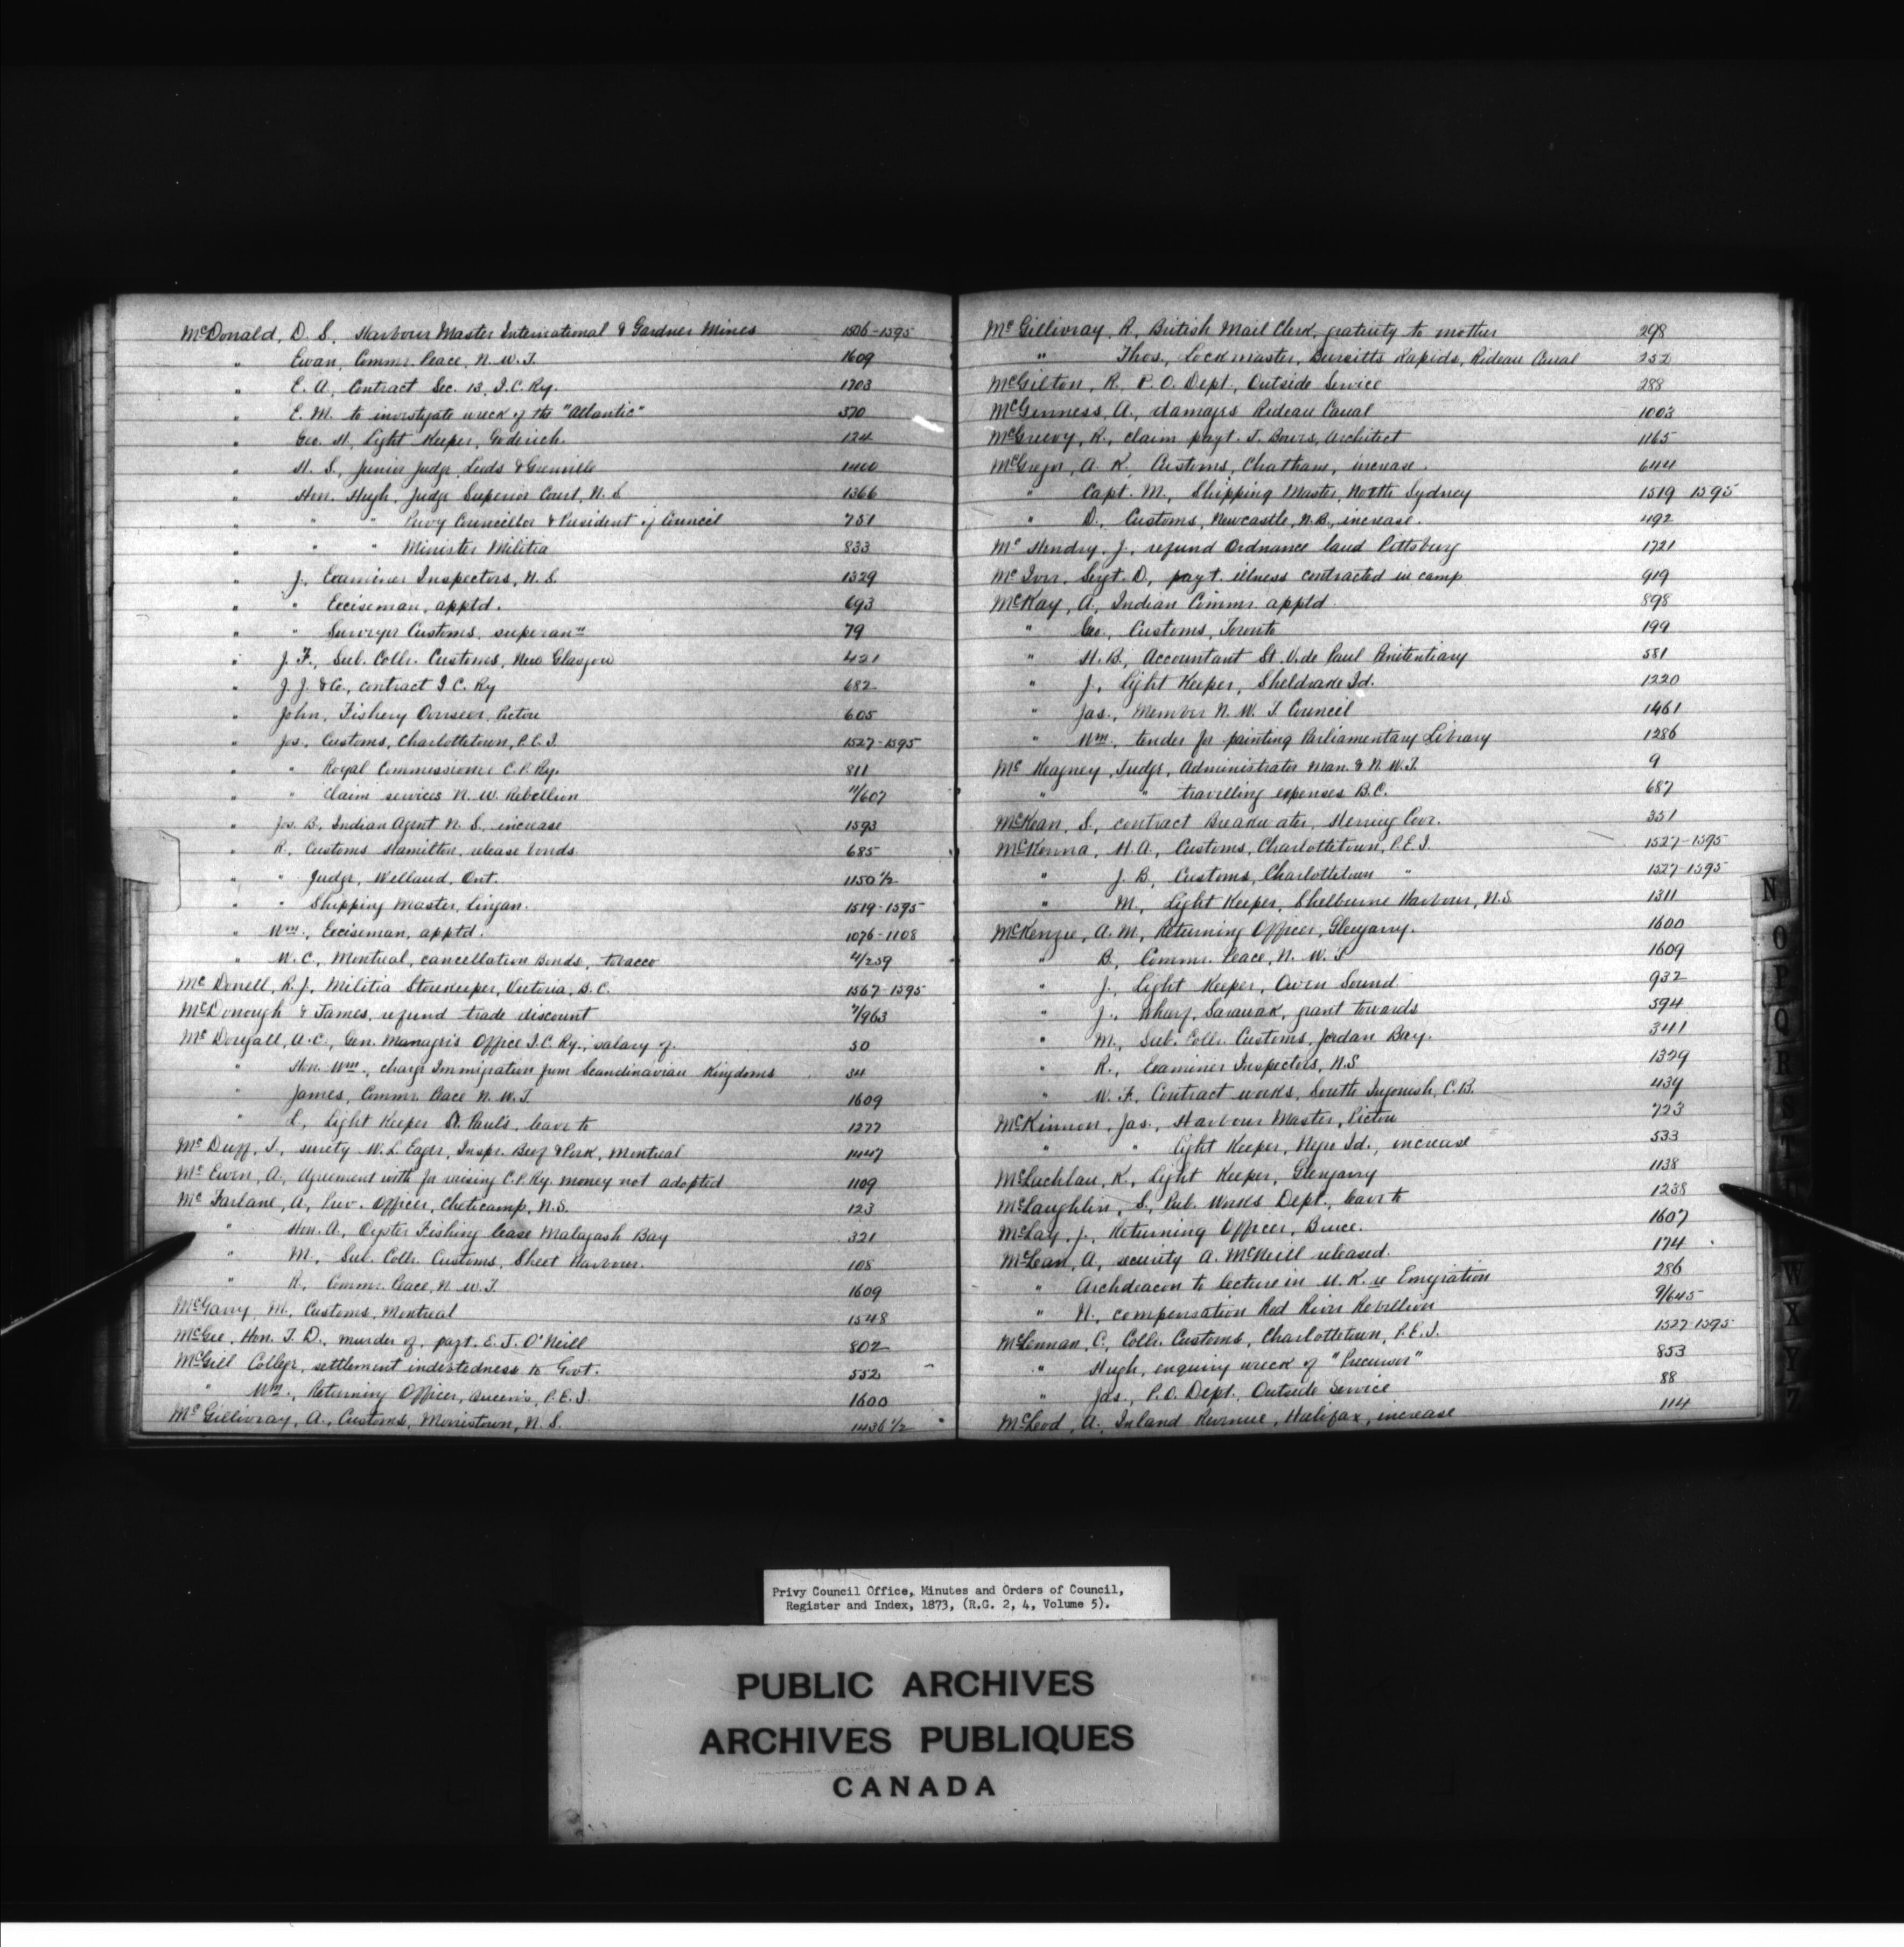 McDonald, D. S., Harbour Master International & Gardner Mines 1506-1595
" Ewan, Commr. Peace, N. W. T. 1609
" E. A., Contract Sec. 13, I. C. Ry. 1703
" E. M. to investigate wreck of the "Atlantic" 570
" Geo. H., Light Keeper, Goderich. 124
" H. S., Junior Judge, Leeds & Grenville 1400
" Hon. Hugh, Judge Superior Court, N. S 1366
" " " Privy Councillor & President of Council 751
" " " Minister Militia 833
" J., Examiner Inspectors, N. S. 1329
" " Exciseman, apptd. 693
" " Surveyor Customs, superann 79
" J. F., Sub. Collr. Customs, New Glasgow 421
" J. J. & Co., contract I C. Ry 682
" John, Fishery Overseer, Pictou 605
" Jos., Customs, Charlottetown, P. E. I. 1527-1595
" " Royal Commissioner C. P. Ry. 811
" " claim services N. W. Rebellion 11/607
" Jos. B., Indian Agent N. S., increase 1593
" R., Customs Hamilton, release bonds 685
" " Judge, Welland, Ont. 1150 1/2
" " Shipping Master, Lingan. 1519-1595
" Wm., Exciseman, apptd. 1076-1108
" W. C., Montreal, cancellation Bonds, tobacco 4/259
McDonell, R. J., Militia Storekeeper, Victoria, B. C. 1567-1595
McDonough & James, refund trade discount 7/963
McDougall, A. C., Gen. Managers Office I. C. Ry., salary of. 50
" Hon. Wm., charge Immigration from Scandinavian Kingdoms 34
" James, Commr. Peace N. W. T 1609
" L., Light Keeper St. Pauls, leave to 1277
McDuff, J., surety W. L. Eager, Inspr. Beef & Pork, Montreal 1447
McEwen, A., Agreement with for raising C. P. Ry. money not adopted 1109
McFarlane, A., Prev. Officer, Cheticamp, N. S. 123
" Hon. A., Oyster Fishing lease Malagash Bay 321
" M., Sub. Collr. Customs, Sheet Harbour. 108
" R., Commr. Peace, N. W. T. 1609
McGarry, M., Customs, Montreal 1548
McGee, Hon. T. D., murder of, payt. E. J. O'Neill 802
McGill College, settlement indebtedness to Govt. 552
" Wm., Returning Officer, Queen's, P. E. I. 1600
McGillivray, A., Customs, Morristown, N. S. 1436 1/2
McGillivray, R., British Mail Clerk, gratuity to mother 298
" Thos., Lockmaster, Burritts Rapids, Rideau Canal 252
McGilton, R., P. O. Dept., Outside Service 288
McGinness, A., damages Rideau Canal 1003
McGreevy, R., claim payt. J. Bowes, Architect 1165
McGregor, A. K., Customs, Chatham, increase. 644
" Capt. M., Shipping Master, North Sydney 1519-1595
" D., Customs, Newcastle, N. B., increase. 492
McHendry, J., refund Ordnance land Pittsburg 1721
McIver, Sergt. D., payt. illness contracted in camp 919
McKay, A., Indian Commr. apptd. 898
" Geo., Customs, Toronto 199
" H. B., Accountant St. V. de Paul Penitentiary 581
" J., Light Keeper, Sheldrake Id. 1220
" Jas., Member N. W. T Council 1461
" Wm., tender for painting Parliamentary Library 1286
McKeagney, Judge, Administrator Man. & N. W. T. 9
" " travelling expenses B. C. 687
McKean, S., contract Breakwater, Herring Cove. 351
McKenna, H. A., Customs, Charlottetown, P. E. I. 1527-1595
" J. B., Customs, Charlottetown " 1527-1595
" M., Light Keeper, Shelburne Harbour, N. S. 1311
McKenzie, A. M., Returning Officer, Glengarry. 1600
" B., Commr. Peace, N. W. T 1609
" J., Light Keeper, Owen Sound 932
" J., Wharf, Sarawak, grant towards 594
" M., Sub. Collr. Customs, Jordan Bay. 341
" R., Examiner Inspectors, N. S 1329
" W. F., Contract works, South Ingonish, C. B. 439
McKinnon, Jas., Harbour Master, Pictou 723
" " Light Keeper, Id., increase 533
McLachlan, K., Light Keeper, Glengarry 1138
McLaughlin, S., Pub. Works Dept., leave to 1238
McLay, J., Returning Officer, Bruce. 1607
McLean, A., security A. McNeill released. 174
" Archdeacon to lecture in U. K. re Emigration 286
" N., compensation Red River Rebellion 9/645
McLennan, C., Collr. Customs, Charlottetown, P. E. I. 1527-1595
" Hugh, enquiry wreck of "Precursor" 853
" Jas., P. O. Dept., Outside Service 88
McLeod, A., Inland Revenue, Halifax, increase 114
N
O
P
Q
R
S
T
W
X
Y
Z
Privy Council Office, Minutes and Orders of Council,
Register and Index, 1873, (R.G. 2, 4, Volume 5).
PUBLIC ARCHIVES
ARCHIVES PUBLIQUES
CANADA